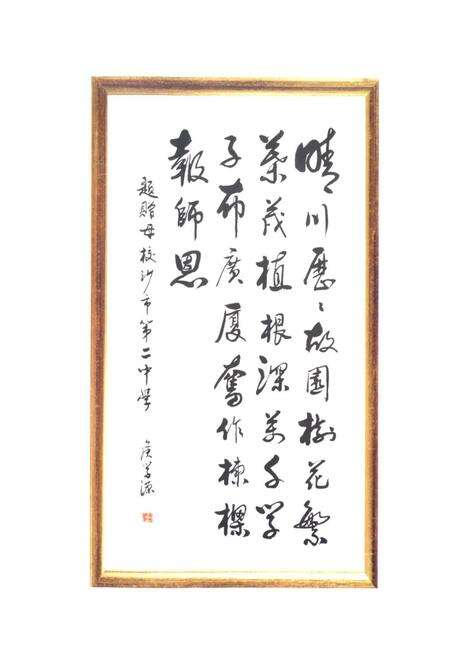 晴川歷〻故園樹花繁
葉茂植根深萬千學
子布廣廈奮作棟樑
報師恩
題贈母校沙市第二中學